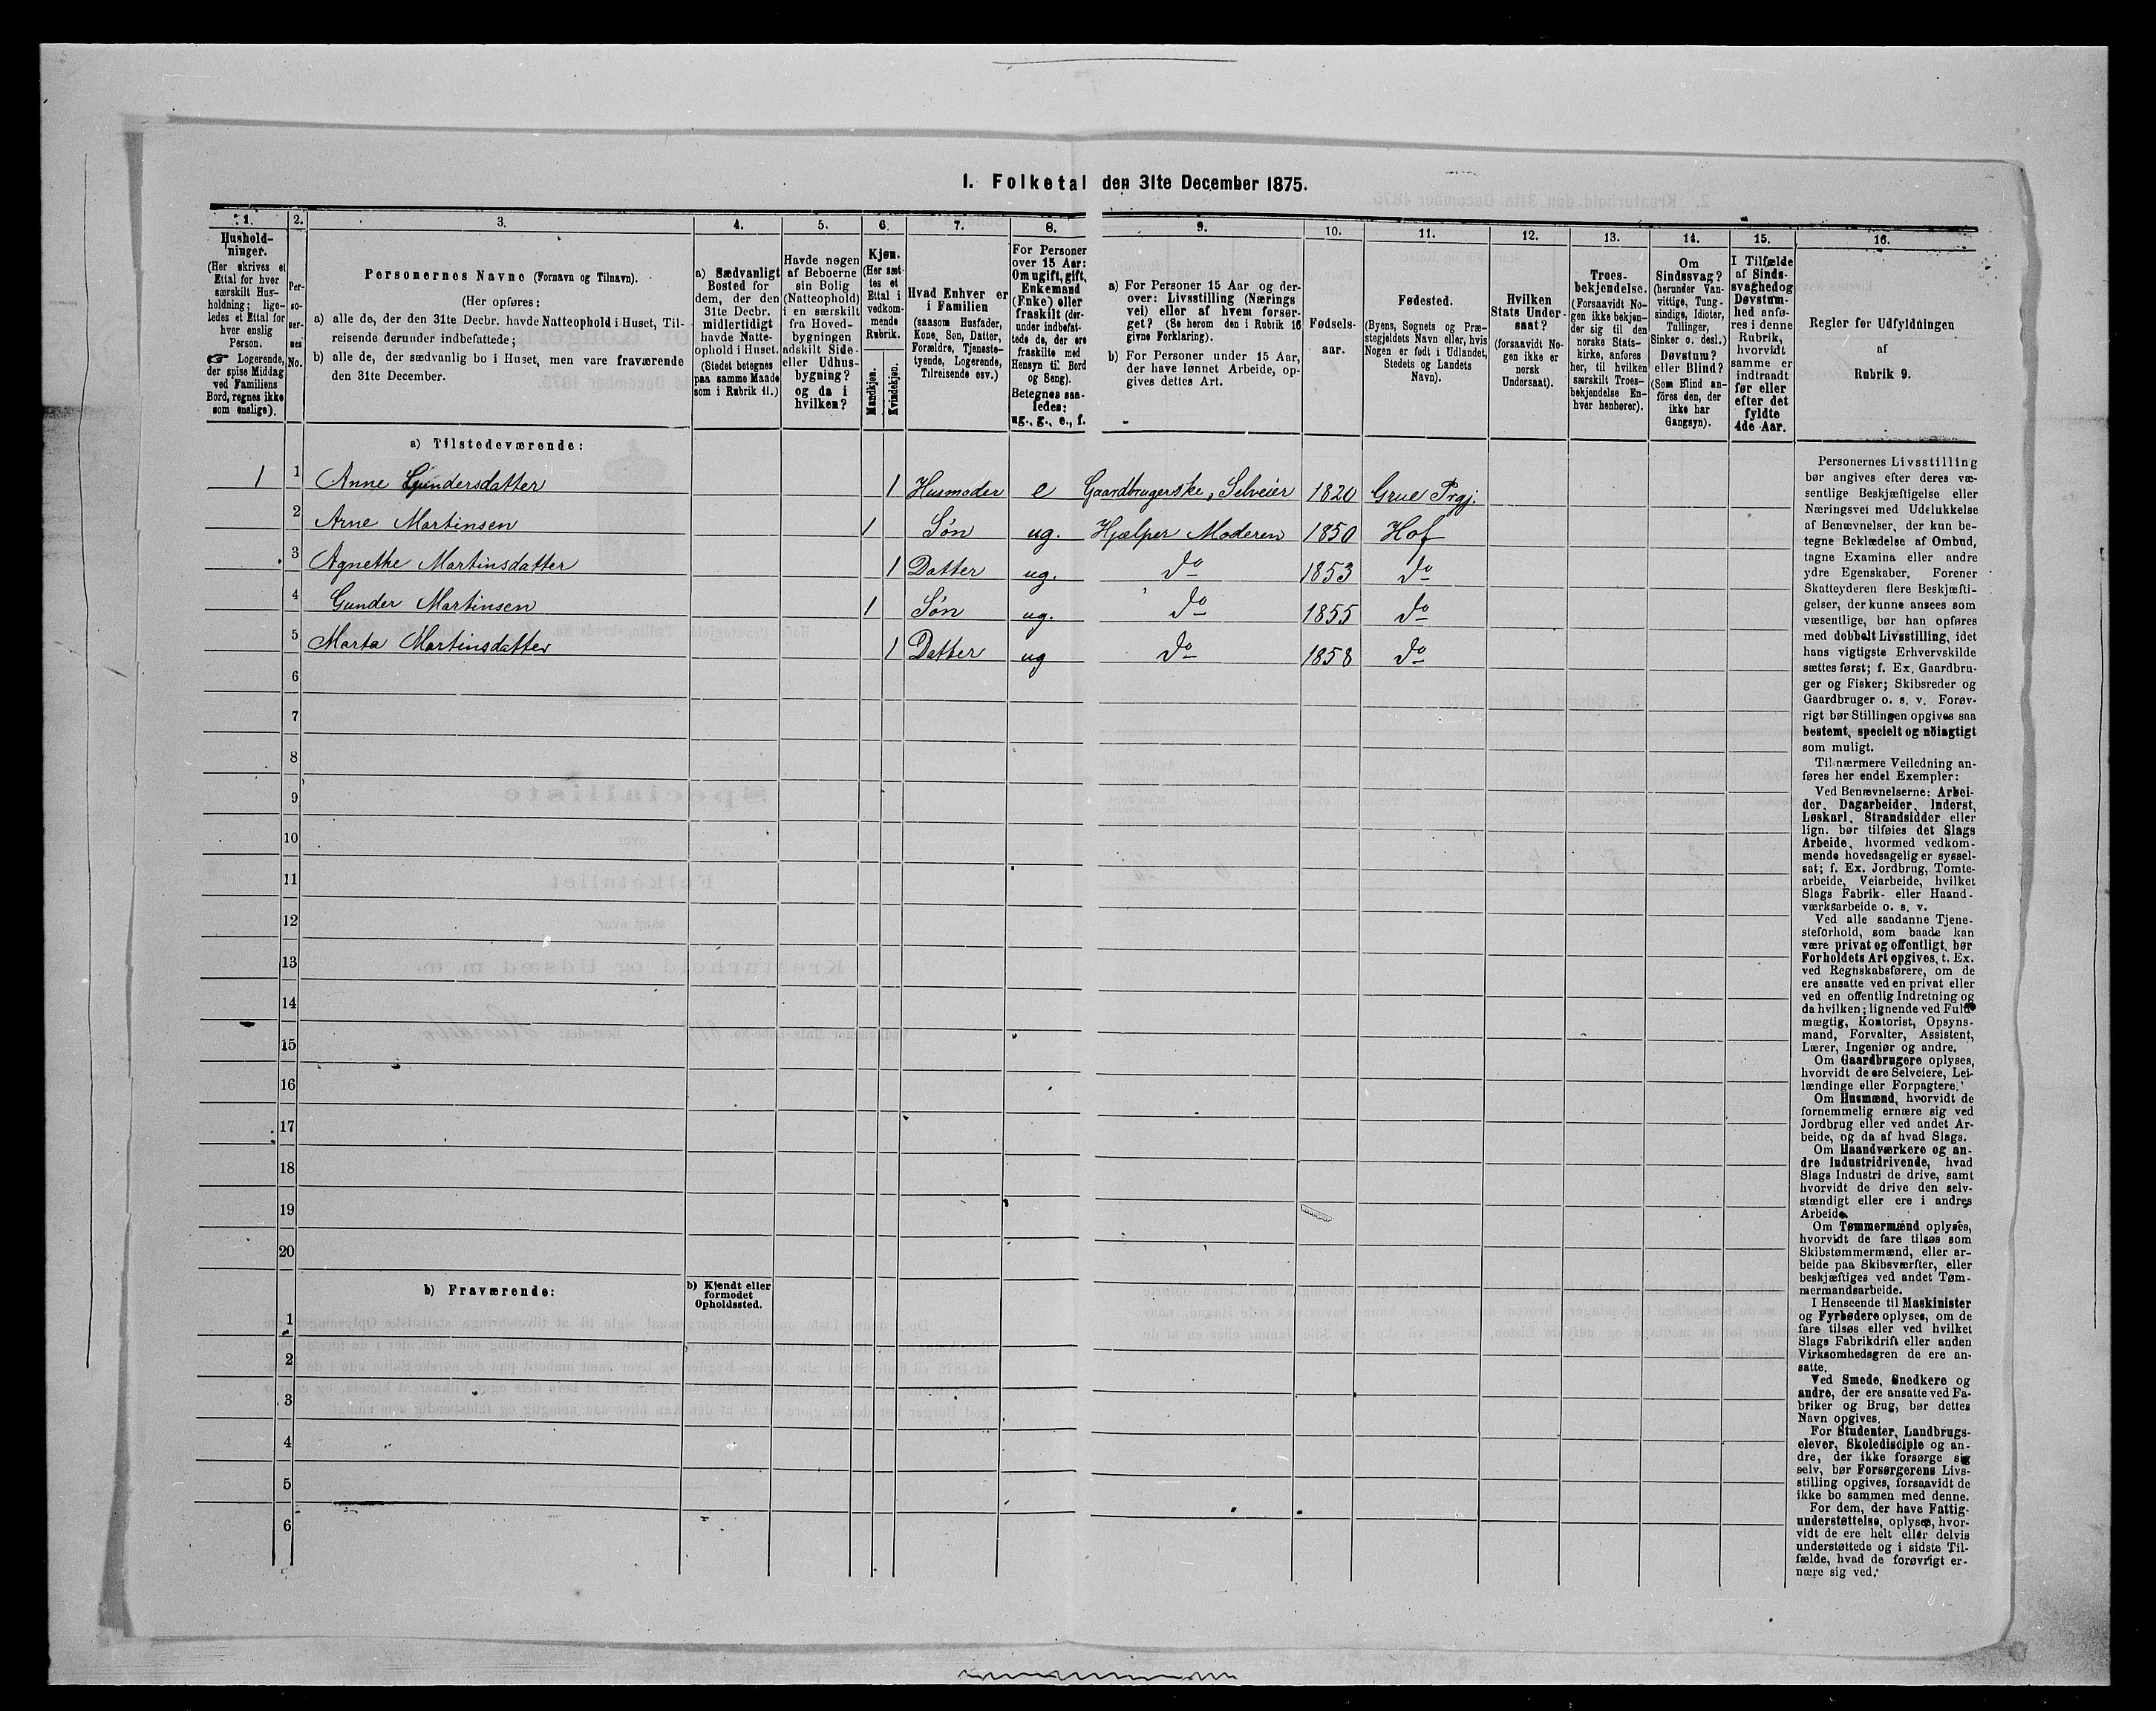 1. Folketal den 31te December 1875.
1. 2. 3. 4. 5. 6. 7. 8. 9. 10. 11. 12. 13. 14. 15. 16.
Hushold-
ninger.
(Her skrives et
Ettal for hver
særskilt Hus-
holdning; lige-
ledes et Ettal for
hver enslig
Person.
☞ Logerende,
der spise Middag
ved Familiens
Bord, regnes ikke
som enslige).
Per-
so-
ner-
nes
No.
Personernes Navne (Fornavn og Tilnavn).
(Her opføres:
a) alle de, der den 31te Decbr. havde Natteophold i Huset, Til-
reisende derunder indbefattede;
b) alle de, der sædvanlig bo i Huset, men vare fraværende
den 31te December.
a) Sædvanligt
Bosted for
dem, der den
31te Decbr.
midlertidigt
havde Natte-
ophold i Huset.
(Stedet betegnes
paa samme Maade
som i Rubrik 11.)
Havde nogen
af Beboerne
sin Bolig
(Natteophold)
i en særskilt
fra Hoved-
bygningen
adskilt Side-
eller Udhus-
bygning?
og da i
hvilken?
Kjøn.
(Her sæt-
tes et
Ettal i
vedkom-
mende
Rubrik.
Mandkjøn.
Kvindekjøn.
Hvad Enhver er
i Familien
(saasom Husfader,
Kone, Søn, Datter,
Forældre, Tjeneste-
tyende, Logerende,
Tilreisende osv.)
For Personer
over 15 Aar:
Om ugift, gift,
Enkemand
(Enke) eller
fraskilt (der-
under indbefat-
tede de, der ere
fraskilte med
Hensyn til Bord
og Seng).
Betegnes saa-
ledes:
ug., g., e., f.
a) For Personer 15 Aar og der-
over: Livsstilling (Nærings
vei) eller af hvem forsør-
get? (Se herom den i Rubrik 16
givne Forklaring).
b) For Personer under 15 Aar,
der have lønnet Arbeide, op-
gives dettes Art.
Fødsels-
aar.
Fødested.
(Byens, Sognets og Præ-
stegjeldets Navn eller, hvis
Nogen er født i Udlandet,
Stedets og Landets
Navn).
Hvilken
Stats Under-
saat?
(forsaavidt No-
gen ikke er
norsk
Undersaat).
Troes-
bekjendelse.
(Forsaavidt No-
gen ikke bekjen-
der sig til den
norske Stats-
kirke, anføres
her, til hvilken
særskilt Troes-
bekjendelse En-
hver henhører).
Om
Sindssvag?
(herunder Van-
vittige, Tung-
sindige, Idioter,
Tullinger,
Sinker o. desl.)
Døvstum?
eller Blind?
(Som Blind an-
føres den, der
ikke har
Gangsyn).
I Tilfælde
af Sinds-
svaghed og
Døvstum-
hed anfø-
res i denne
Rubrik,
hvorvidt
samme er
indtraadt
før eller
efter det
fyldte
4de Aar.
Regler for Udfyldningen
af
Rubrik 9.
a) Tilstedeværende:
1 1 Anne Gundersdatter 1 Husmoder e Gaardbrugerske, Selveier 1820 Grue Prgj.
2 Arne Martinsen 1 Søn ug. Hjælper Moderen 1850 Hof
3 Agnethe Martinsdatter 1 Datter ug. do 1853 do
4 Gunder Martinsen 1 Søn ug. do 1855 do
5 Marta Martinsdatter 1 Datter ug do 1858 do
6
7
8
9
10
11
12
13
14
15
16
17
18
19
20
b) Fraværende:
b) Kjendt eller
formodet
Opholdssted.
1
2
3
4
5
6
Personernes Livsstilling
bør angives efter deres væ-
sentlige Beskjæftigelse eller
Næringsvei med Udelukkelse
af Benævnelser, der kun be-
tegne Beklædelse af Ombud,
tagne Examina eller andre
ydre Egenskaber. Forener
Skatteyderen flere Beskjæfti-
gelser, der kunne ansees som
væsentlige, bør han opføres
med dobbelt Livsstilling, idet
hans vigtigste Erhvervskilde
sættes først; f. Ex. Gaardbru-
ger og Fisker; Skibsreder og
Gaardbruger o. s. v. Forøv-
rigt bør Stillingen opgives saa
bestemt, specielt og nøiagtigt
som muligt.
Til nærmere Veiledning an-
føres her endel Exempler:
Ved Benævnelserne: Arbei-
der, Dagarbeider, Inderst,
Løskarl, Strandsidder eller
lign. bør tilføies det Slags
Arbeide, hvormed vedkom-
mende hovedsagelig er syssel-
sat; f. Ex. Jordbrug, Tomte-
arbeide, Veiarbeide, hvilket
Slags Fabrik- eller Haand-
værksarbeide o. s. v.
Ved alle saadanne Tjene-
steforhold, som baade kan
være privat og offentligt, bør
Forholdets Art opgives, t. Ex.
ved Regnskabsførere, om de
ere ansatte ved en privat eller
ved en offentlig Indretning og
da hvilken; lignende ved Fuld-
mægtig, Kontorist, Opsyns-
mand, Forvalter, Assistent,
Lærer, Ingeniør og andre.
Om Gaardbrugere oplyses,
hvorvidt de ere Selveiere, Lei-
lændinge eller Forpagtere.
Om Husmænd, hvorvidt de
fornemmelig ernære sig ved
Jordbrug eller ved andet Ar-
beide, og da af hvad Slags.
Om Haandværkere og an-
dre Industridrivende, hvad
Slags Industri de drive, samt
hvorvidt de drive den selv-
stændigt eller ere i andres
Arbeide.
Om Tømmermænd oplyses,
hvorvidt de fare tilsøs som
Skibstømmermænd, eller ar-
beide paa Skibsværfter, eller
beskjæftiges ved andet Tøm-
mermandsarbeide.
I Henseende til Maskinister
og Fyrbødere oplyses, om de
fare tilsøs eller ved hvilket
Slags Fabrikdrift eller anden
Virksomhedsgren de ere an-
satte.
Ved Smede, Snedkere og
andre, der ere ansatte ved Fa-
briker og Brug, bør dettes
Navn opgives.
For Studenter, Landbrugs-
elever, Skoledisciple og an-
dre, der ikke forsørge sig
selv, bør Forsørgerens Livs-
stilling opgives, forsaavidt de
ikke bo sammen med denne.
For dem, der have Fattig-
understøttelse, oplyses, hvor-
vidt de ere helt eller delvis
understøttede og i sidste Til-
fælde, hvad de forøvrigt er-
nære sig ved.